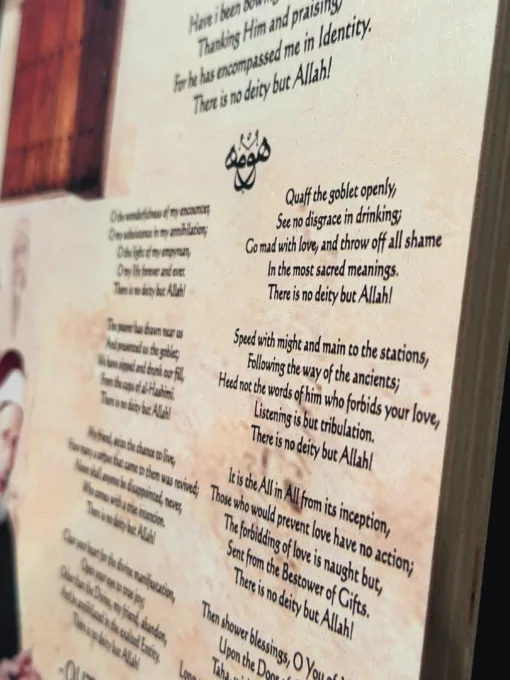 Have i been bowing
Thanking Him and praising,
For he has encompassed me in Identity.
There is no deity but Allah!
O the wonderfulness of my encounter,
O my subsistence in my annihilation;
O the light of my empyrean,
O my life forever and ever.
There is no deity but Allah!
The pourer has drawn near us
And presented us the goblet;
We have sipped and drunk our fill,
From the cups of al-Hashimi.
There is no deity but Allah!
My friend, seize the chance to live,
How many a corpse that came to them was revived;
Never shall anyone be disappointed, never,
Who comes with a true intention.
There is no deity but Allah!
Clear your heart for the divine manifestation,
Open your eyes to true joy;
Other than the Divine, my friend, abandon,
And be annihilated in the exalted Entity.
There is no deity but Allah!
Quaff the goblet openly,
See no disgrace in drinking;
Go mad with love, and throw off all shame
In the most sacred meanings.
There is no deity but Allah!
Speed with might and main to the stations,
Following the way of the ancients;
Heed not the words of him who forbids your love,
Listening is but tribulation.
There is no deity but Allah!
It is the All in All from its inception,
Those who would prevent love have no action;
The forbidding of love is naught but,
Sent from the Bestower of Gifts.
There is no deity but Allah!
Then shower blessings, O You of
Upon the
Taha,